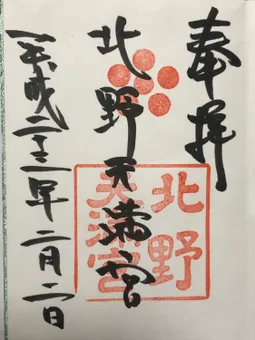 奉拝
北野天満宮
北野
天満宮
平成二十三年二月二日